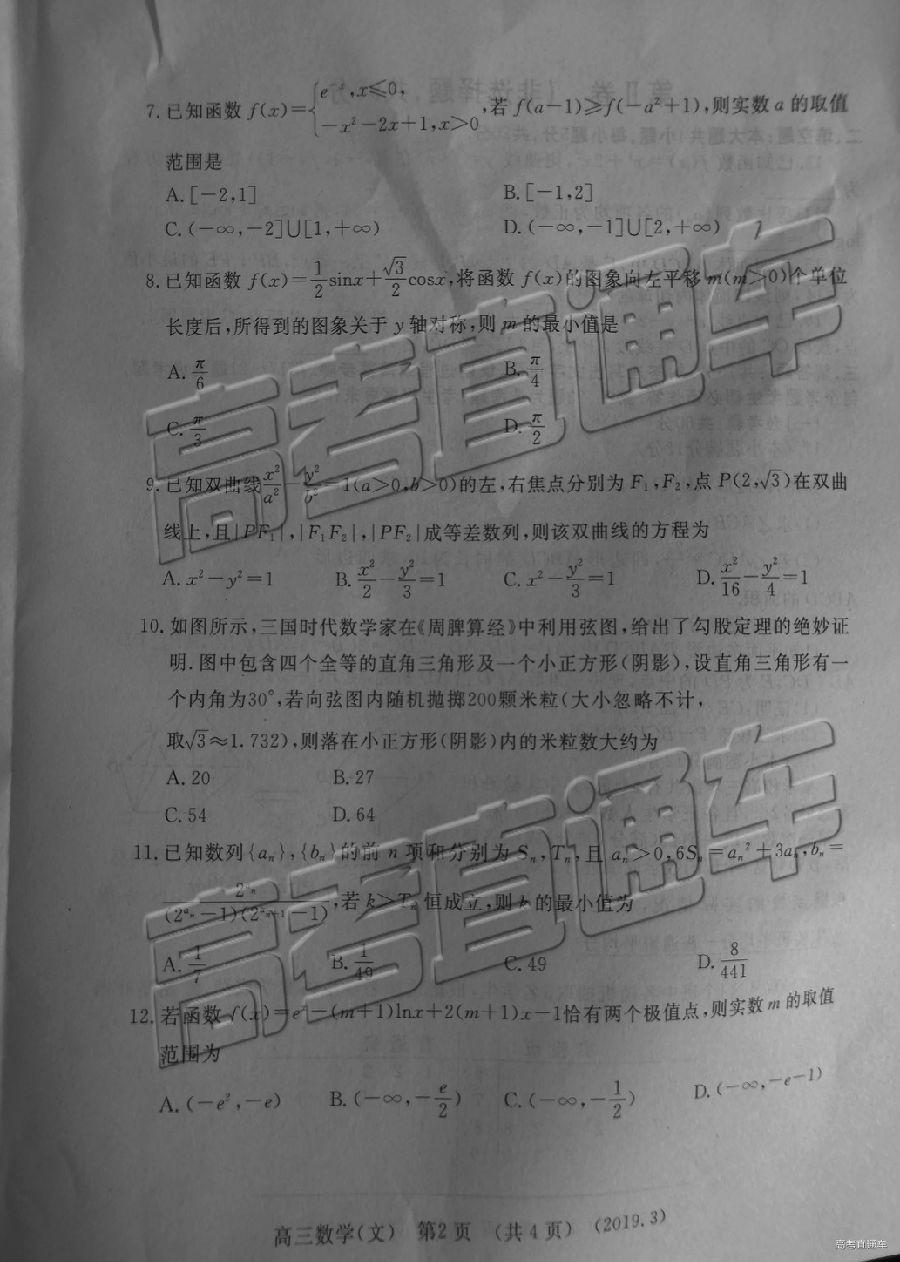 7.已知函数 f(x)={e^{-x},x≤0, -x²-2x+1,x>0 ,若 f(a-1)≥f(-a²+1),则实数 a 的取值
范围是
A.[-2,1] B.[-1,2]
C.(-∞,-2]∪[1,+∞) D.(-∞,-1]∪[2,+∞)
8.已知函数 f(x)=1/2 sinx+√3/2 cosx,将函数 f(x)的图象向左平移 m(m>0)个单位
长度后,所得到的图象关于 y 轴对称,则 m 的最小值是
A.π/6 B.π/4
C.π/3 D.π/2
9.已知双曲线 x²/a²-y²/b²=1(a>0,b>0)的左,右焦点分别为 F₁,F₂,点 P(2,√3)在双曲
线上,且|PF₁|,|F₁F₂|,|PF₂|成等差数列,则该双曲线的方程为
A.x²-y²=1 B.x²/2-y²/3=1 C.x²-y²/3=1 D.x²/16-y²/4=1
10.如图所示,三国时代数学家在《周脾算经》中利用弦图,给出了勾股定理的绝妙证
明.图中包含四个全等的直角三角形及一个小正方形(阴影),设直角三角形有一
个内角为30°,若向弦图内随机抛掷200颗米粒(大小忽略不计,
取√3≈1.732),则落在小正方形(阴影)内的米粒数大约为
A.20 B.27
C.54 D.64
11.已知数列{aₙ},{bₙ}的前 n 项和分别为 Sₙ,Tₙ,且 aₙ>0,6Sₙ=aₙ²+3aₙ,bₙ=
2^{aₙ}/((2^{aₙ}-1)(2^{aₙ₊₁}-1)),若 k>Tₙ 恒成立,则 k 的最小值为
A.1/7 B.1/49 C.49 D.8/441
12.若函数 f(x)=eˣ-(m+1)lnx+2(m+1)x-1恰有两个极值点,则实数 m 的取值
范围为
A.(-e²,-e) B.(-∞,-e/2) C.(-∞,-1/2) D.(-∞,-e-1)
高三数学(文) 第2页 (共4页) (2019.3)
高考直通车
高考直通车
高考直通车